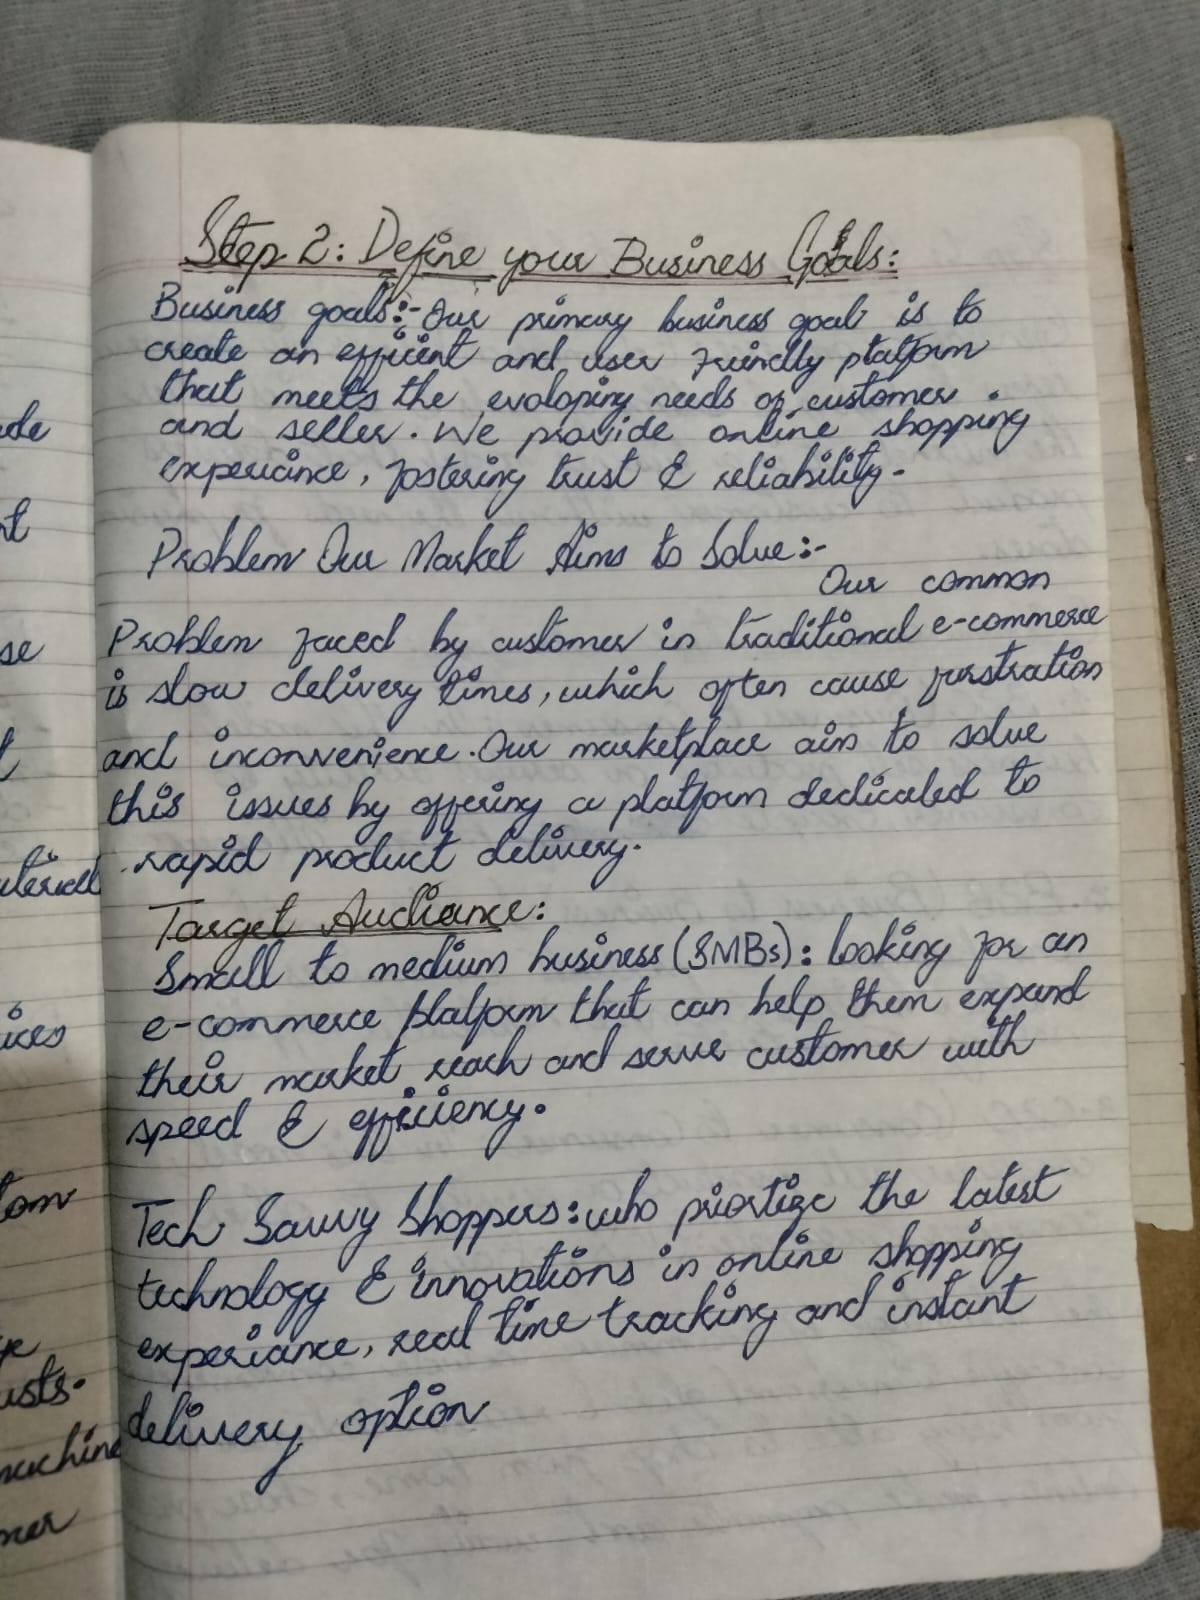 Step 2: Define your Business Goals:
Business goals:- Our primary business goal is to
create an efficient and user friendly platform
that meets the evoloping needs of customer
and seller. We provide online shopping
experiance, fostering trust & reliability.
Problem Our Market Aims to Solve:-
Our common
Problem faced by customer in traditional e-commerce
is slow delivery times, which often cause frustration
and inconvenience. Our marketplace aim to solve
this issues by offering a platform dedicated to
rapid product delivery.
Target Audiance:
Small to medium business (SMBs): looking for an
e-commerce platform that can help them expand
their market reach and serve customer with
speed & efficiency.
Tech Savvy Shoppers: who priortize the latest
technology & innovations in online shopping
experiance, real time tracking and instant
delivery option